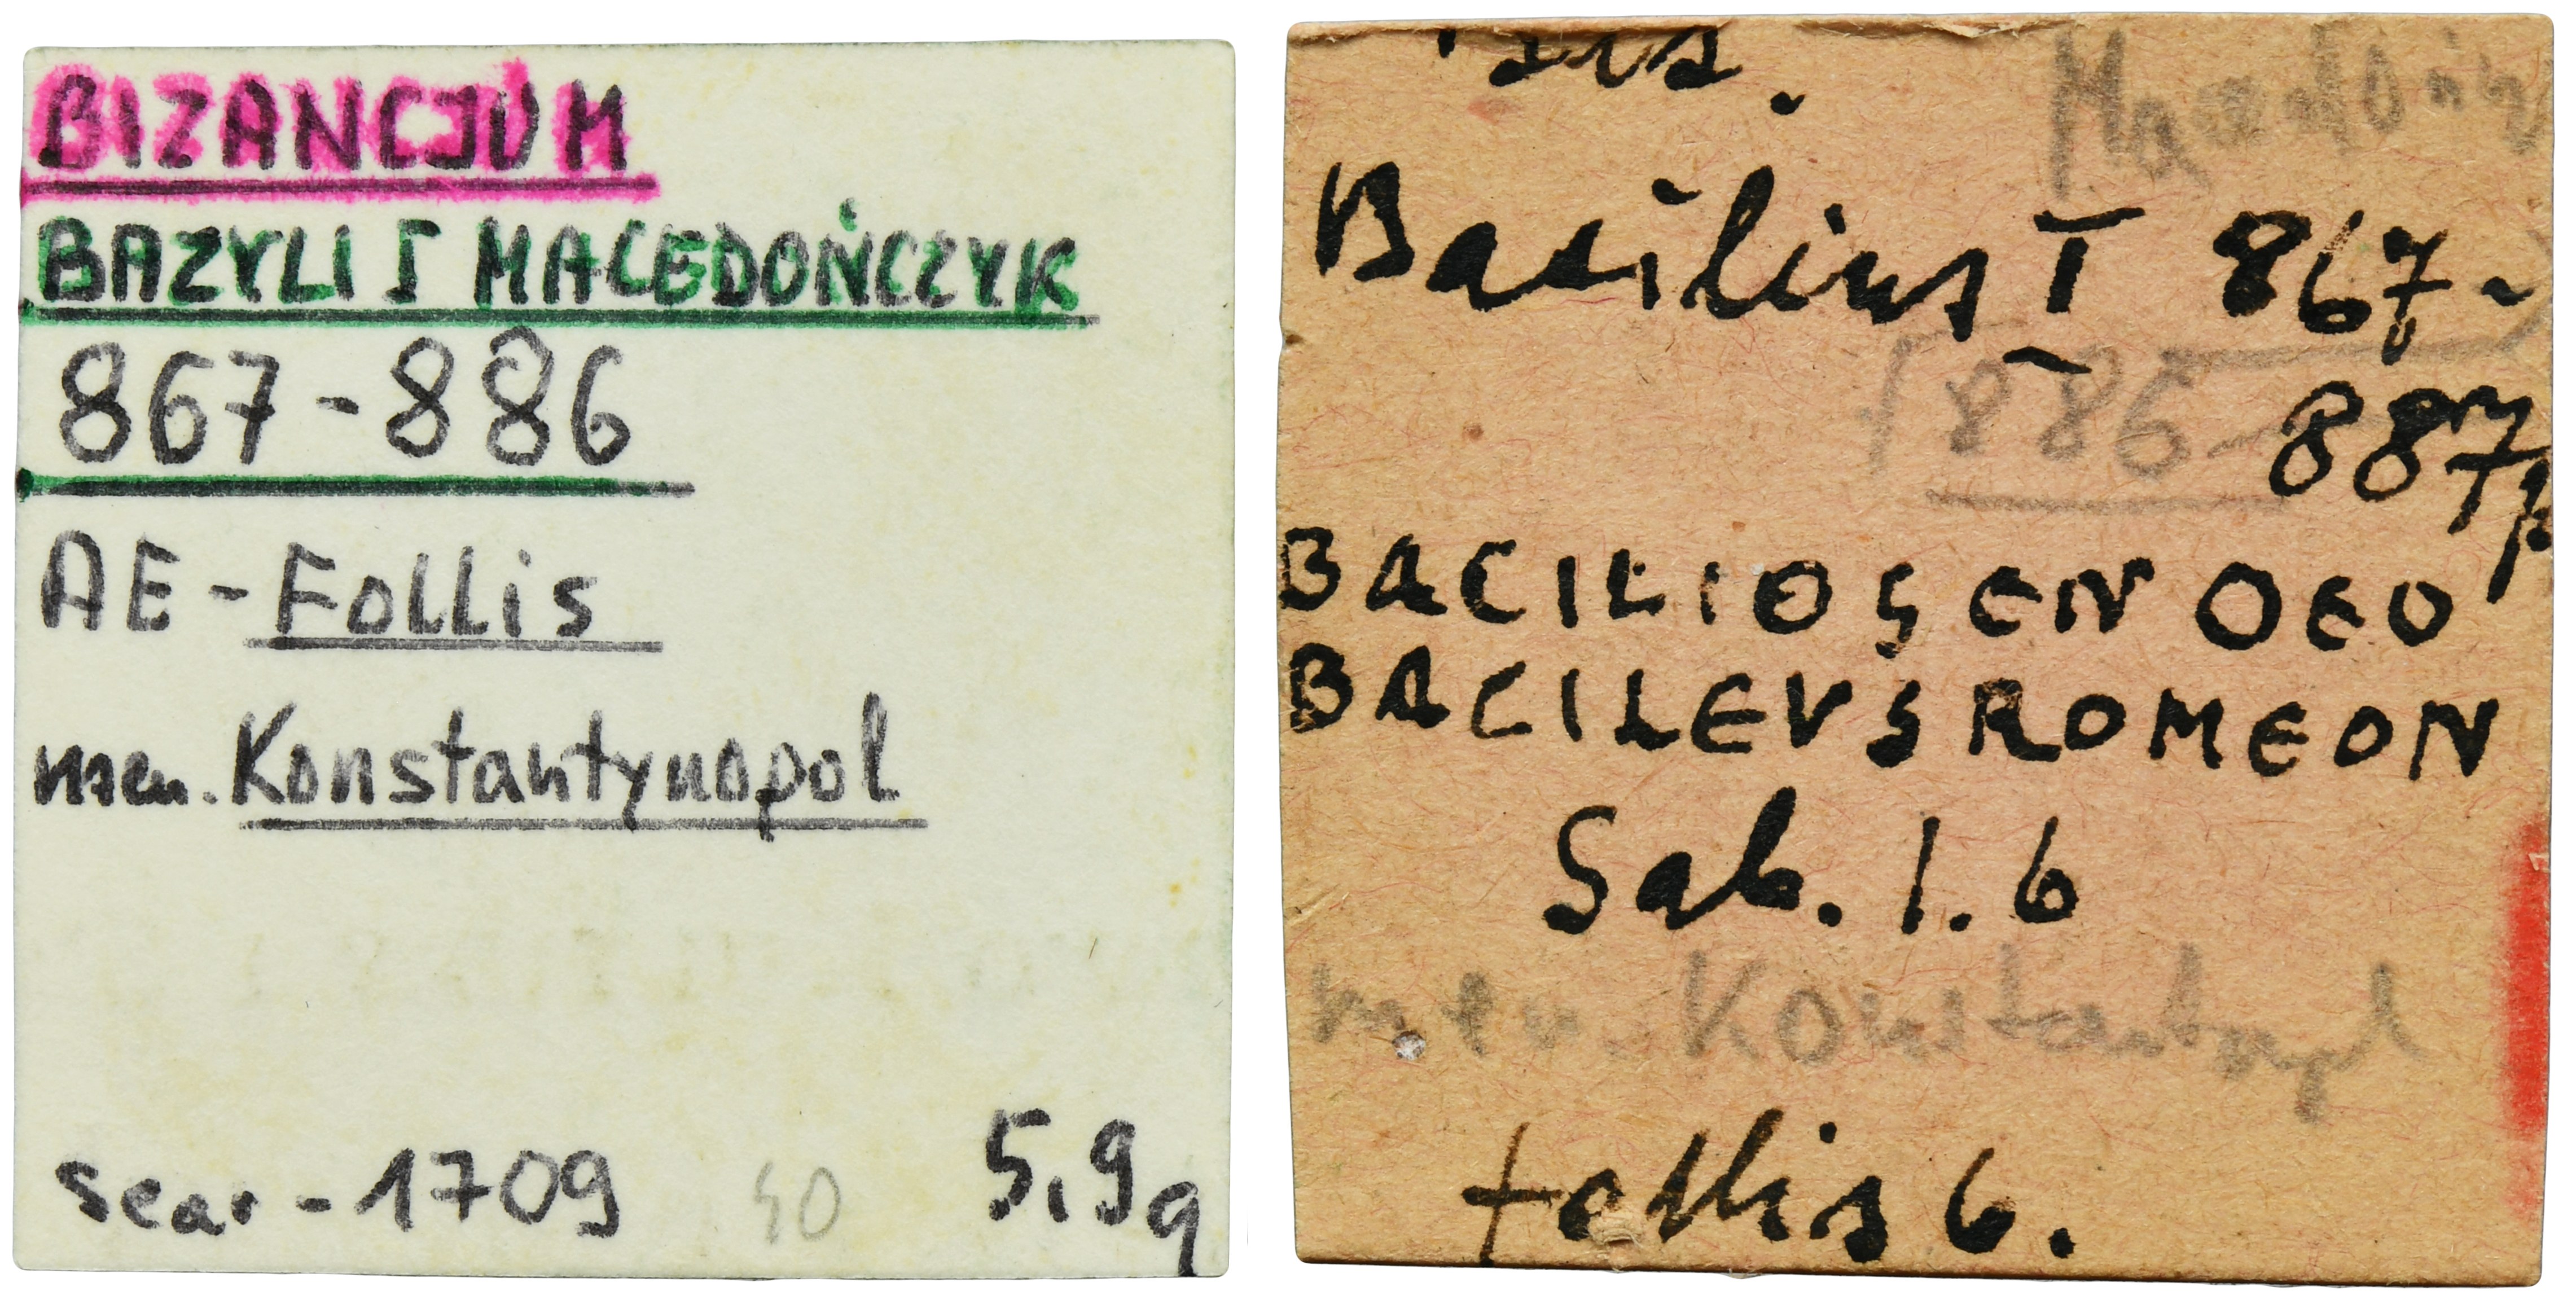 BIZANCJUM
BAZYLI I MACEDOŃCZYK
867-886
AE-Follis
men. Konstantynopol
sear-1709 40 5,9g
Basilius I 867-
886 887
BACILIOS EN OEO
BACILEVS ROMEON
Sab. 1.6
men. Konstantynopol
follis 6.